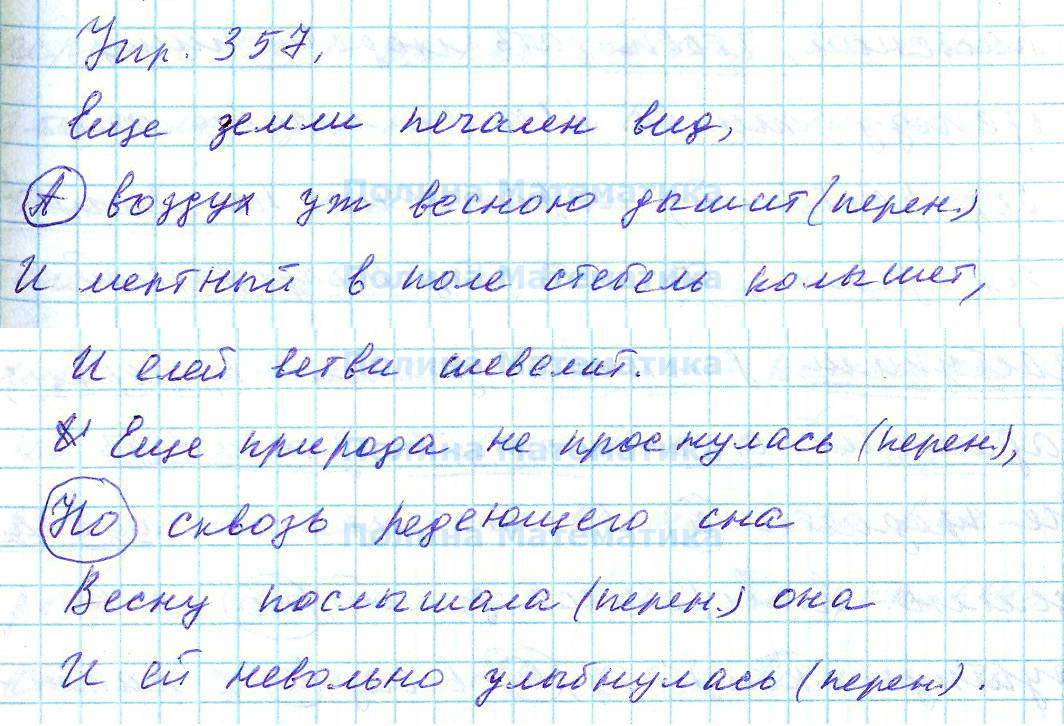 Упр. 357.
Еще земли печален вид,
А воздух уж весною дышит (перен.)
И мертный в поле стебель колышет,
И елей ветви шевелит.
Еще природа не проснулась (перен.),
Но сквозь редеющего сна
Весну послышала (перен.) она
И ей невольно улыбнулась (перен.).
Полина Математика
Полина Математика
Полина Математика
Полина Математика
Полина Математика